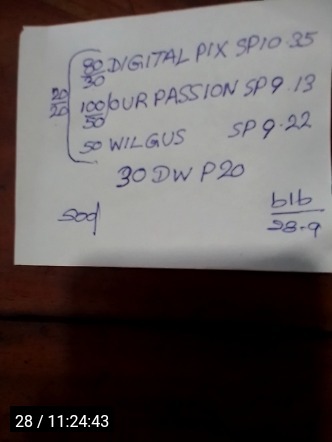 80/30 DIGITAL PIX SP10.35
20/20 100/50 OUR PASSION SP9.13
50 WILGUS SP9.22
30 DW P20
blb
28-9
28 / 11:24:43